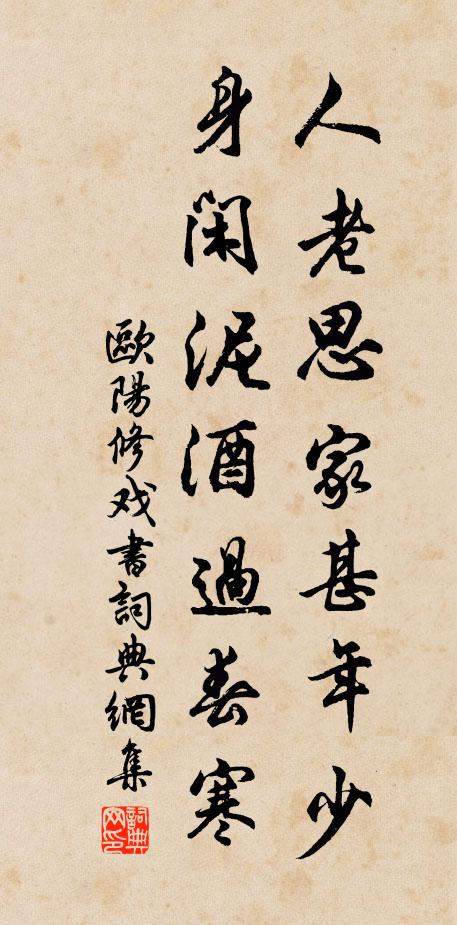 人老思家甚年少
身闲泥酒過春寒
歐陽修戏書詞典網集
詞典
网印